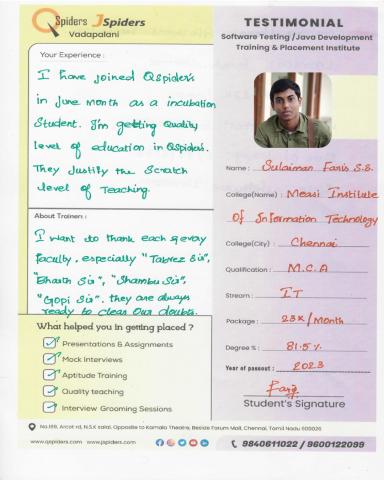 QSpiders JSpiders
Vadapalani
TESTIMONIAL
Software Testing /Java Development
Training & Placement Institute
Your Experience :
I have joined QSpiders
in June month as a incubation
Student. I'm getting Quality
level of education in QSpiders.
They Justify the Scratch
level of Teaching.
About Trainers :
I want to thank each & every
faculty, especially "Tabrez Sir",
"Bharth Sir", "Shambu Sir",
"Gopi Sir". they are always
ready to clear our doubts.
What helped you in getting placed ?
Presentations & Assignments
Mock Interviews
Aptitude Training
Quality teaching
Interview Grooming Sessions
Name : Sulaiman Faris S.S.
College(Name) : Measi Institute
Of Information Technology
College(City) : Chennai
Qualification : M.C.A
Stream : IT
Package : 23K/Month
Degree % : 81.5%
Year of passout : 2023
Student's Signature
No.169, Arcot rd, N.S.K salai, Opposite to Kamala Theatre, Beside Forum Mall, Chennai, Tamil Nadu 600026
www.qspiders.com www.jspiders.com
9840611022 / 9600122099